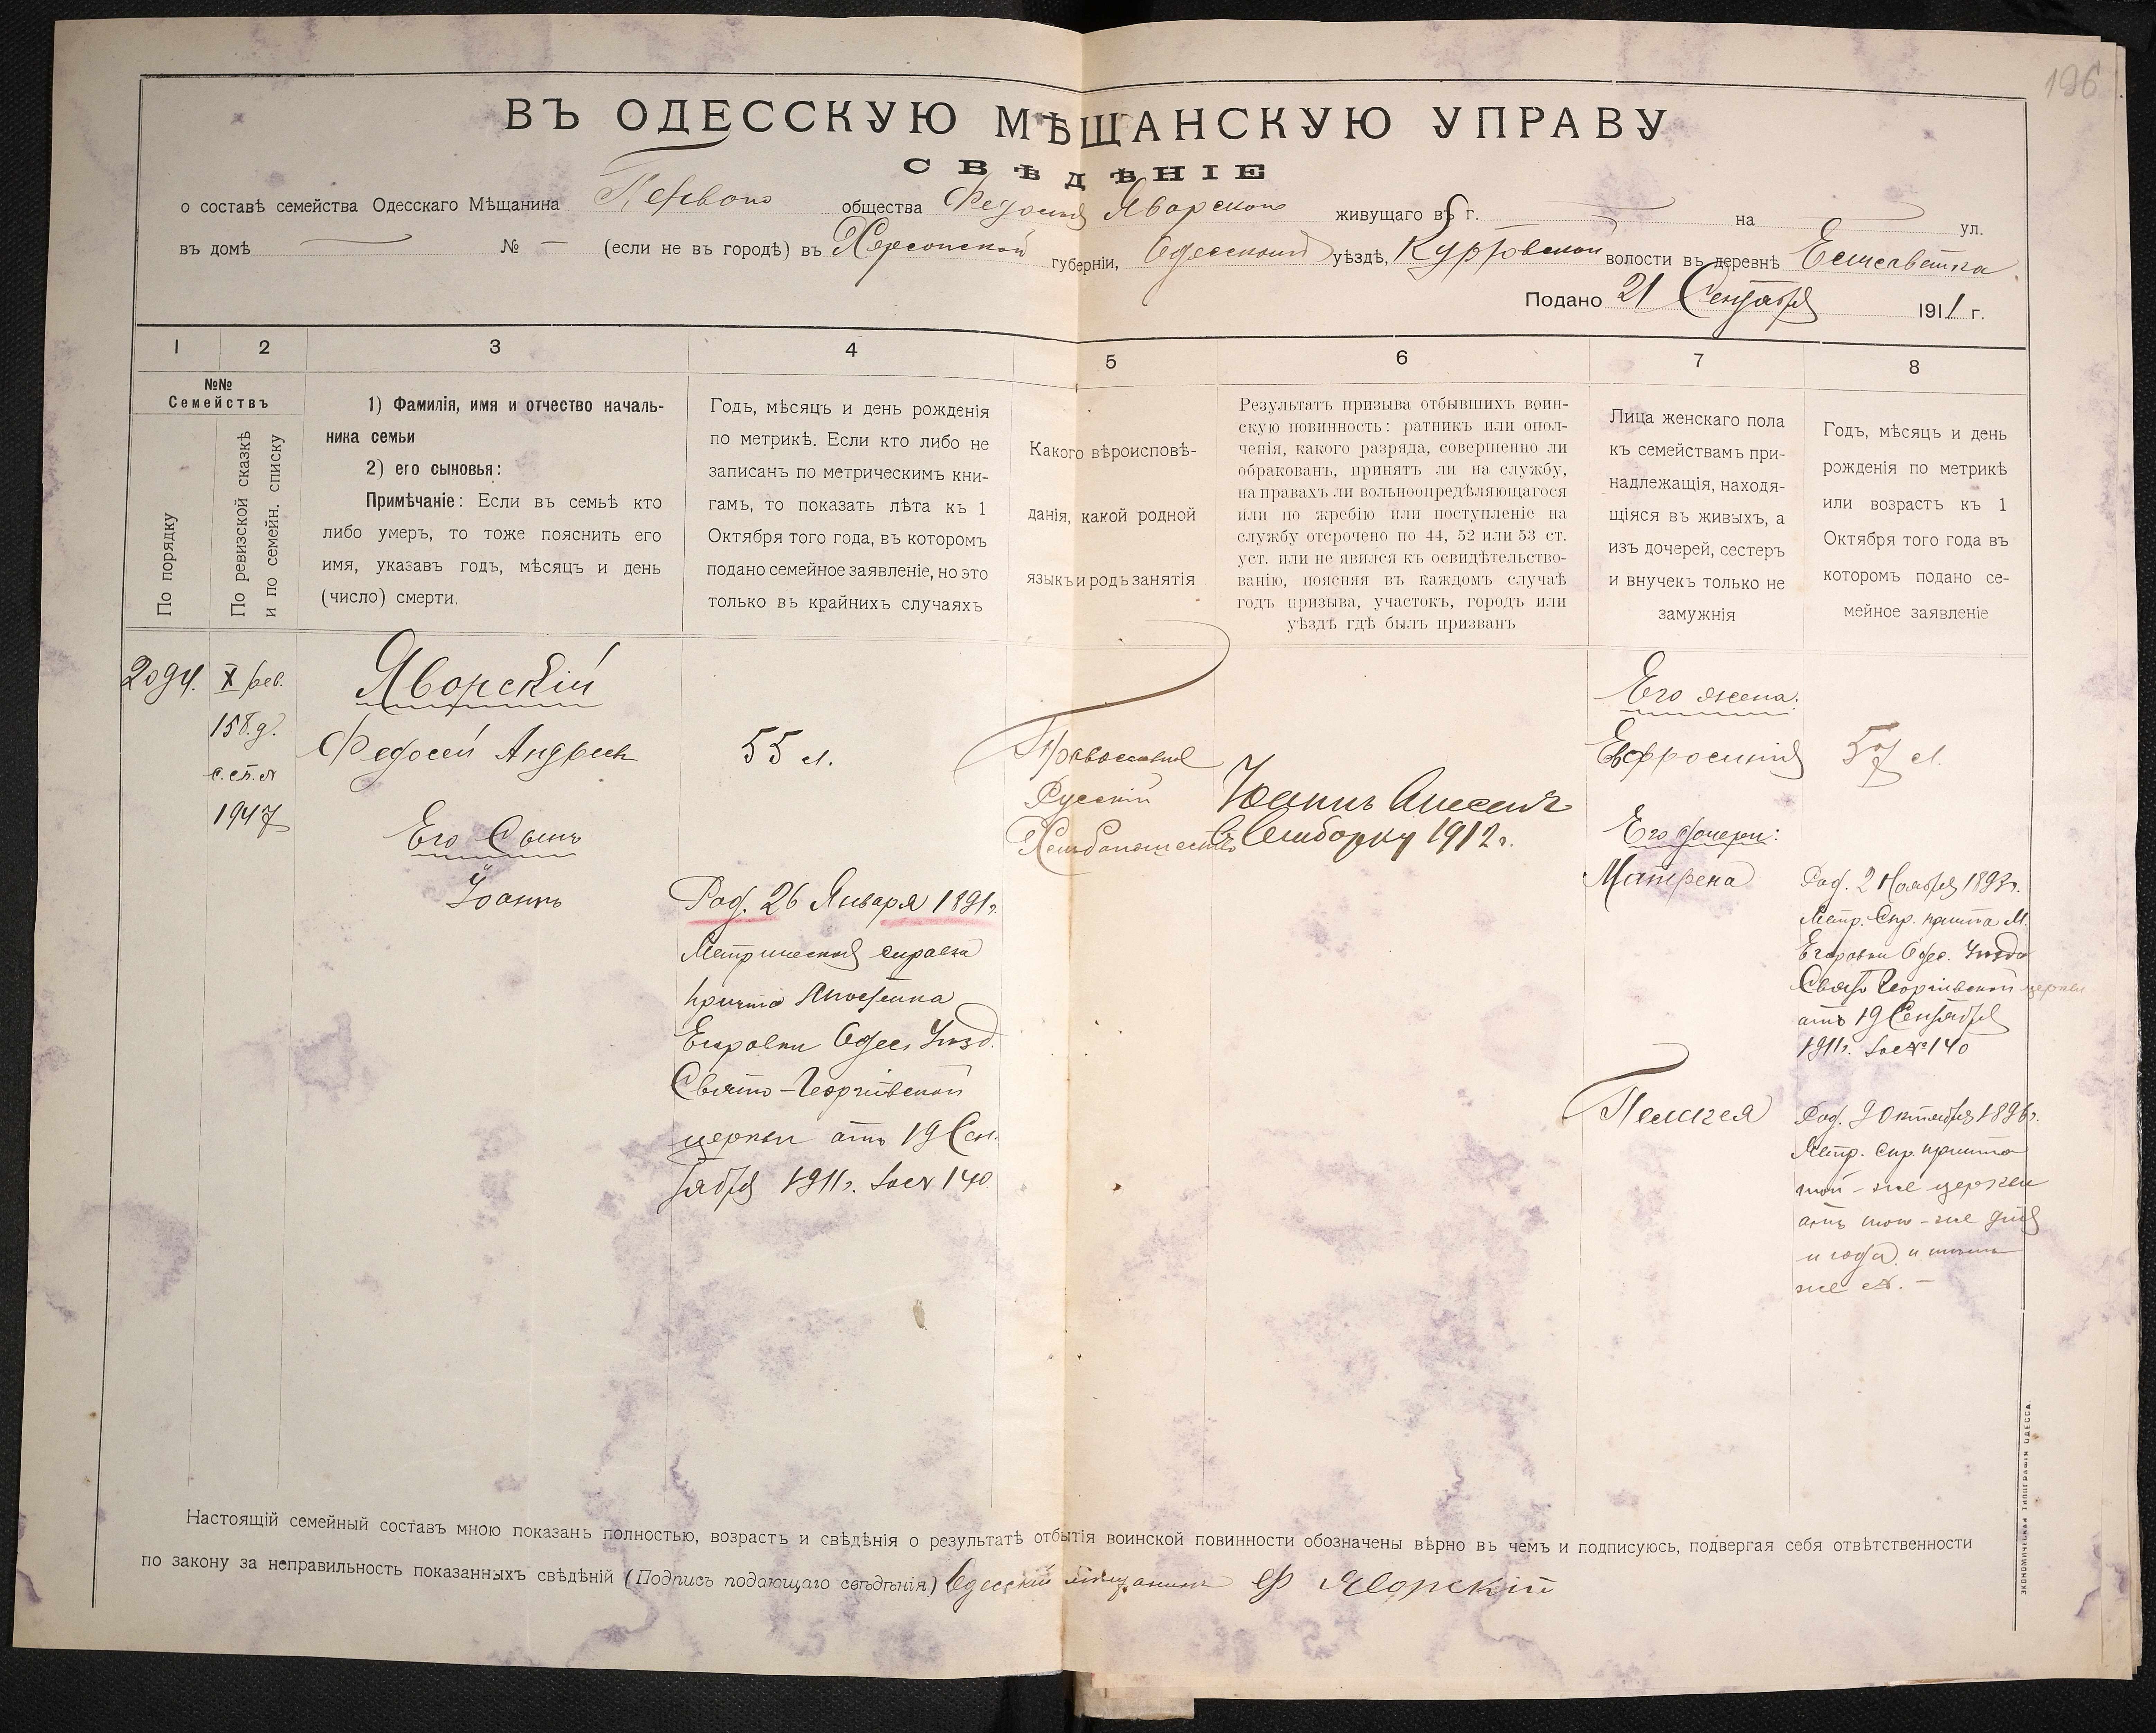 196
ВЪ ОДЕССКУЮ МѢЩАНСКУЮ УПРАВУ
СВѢДѢНІЕ
о составѣ семейства Одесскаго Мѣщанина Перваго общества Федосія Яворскаго живущаго въ г. на ул.
въ домѣ № — (если не въ городѣ) въ Херсонской губерніи, Одесскомъ уѣздѣ, Куртовской волости въ деревнѣ Елисаветка
Подано 21 Сентября 1911 г.
1 2 3 4 5 6 7 8
№№
Семействъ
По порядку
По ревизской сказкѣ
и по семейн. списку
1) Фамилія, имя и отчество началь-
ника семьи
2) его сыновья:
Примѣчаніе: Если въ семьѣ кто
либо умеръ, то тоже пояснить его
имя, указавъ годъ, мѣсяцъ и день
(число) смерти.
Годъ, мѣсяцъ и день рожденія
по метрикѣ. Если кто либо не
записанъ по метрическимъ кни-
гамъ, то показать лѣта къ 1
Октября того года, въ которомъ
подано семейное заявленіе, но это
только въ крайнихъ случаяхъ
Какого вѣроисповѣ-
данія, какой родной
языкъ и родъ занятія
Результатъ призыва отбывшихъ воин-
скую повинность: ратникъ или опол-
ченія, какого разряда, совершенно ли
обракованъ, принятъ ли на службу,
на правахъ ли вольноопредѣляющагося
или по жребію или поступленіе на
службу отсрочено по 44, 52 или 53 ст.
уст. или не явился къ освидѣтельство-
ванію, поясняя въ каждомъ случаѣ
годъ призыва, участокъ, городъ или
уѣздъ гдѣ былъ призванъ
Лица женскаго пола
къ семействамъ при-
надлежащія, находя-
щіяся въ живыхъ, а
изъ дочерей, сестеръ
и внучекъ только не
замужнія
Годъ, мѣсяцъ и день
рожденія по метрикѣ
или возрастъ къ 1
Октября того года въ
которомъ подано се-
мейное заявленіе
2094.
X рев.
158.д.
с. сп. №
1947
Яворскій
Федосій Андреевъ
Его Сынъ
Іоаннъ
55 л.
Род. 26 Января 1891 г.
Метрическая справка
причта Апостика
Егоровки Одес. Уѣзд.
Свято-Георгіевской
церкви отъ 19 Сен-
тября 1911 г. за № 140.
Православный
Русскій
Хлѣбопашество
Іоаннъ внесенъ
въ выборку 1912 г.
Его жена:
Евфросинія
57 л.
Его дочери:
Матрена
Род. 2 Ноября 1893 г.
Метр. Спр. причта М.
Егоровки Одес. Уѣзда
Свято Георгіевской церкви
отъ 19 Сентября
1911 г. за № 140
Пелагея
Род. 9 Октября 1896 г.
Метр. спр. причта
той-же церкви
отъ того-же дня
и года и тотъ
же №. —
Настоящій семейный составъ мною показанъ полностью, возрастъ и свѣдѣнія о результатѣ отбытія воинской повинности обозначены вѣрно въ чемъ и подписуюсь, подвергая себя отвѣтственности
по закону за неправильность показанныхъ свѣдѣній (Подпись подающаго свѣдѣнія) Одесскій мѣщанинъ Ф Яворскій
ЭКОНОМИЧЕСКАЯ ТИПОГРАФІЯ ОДЕССА.